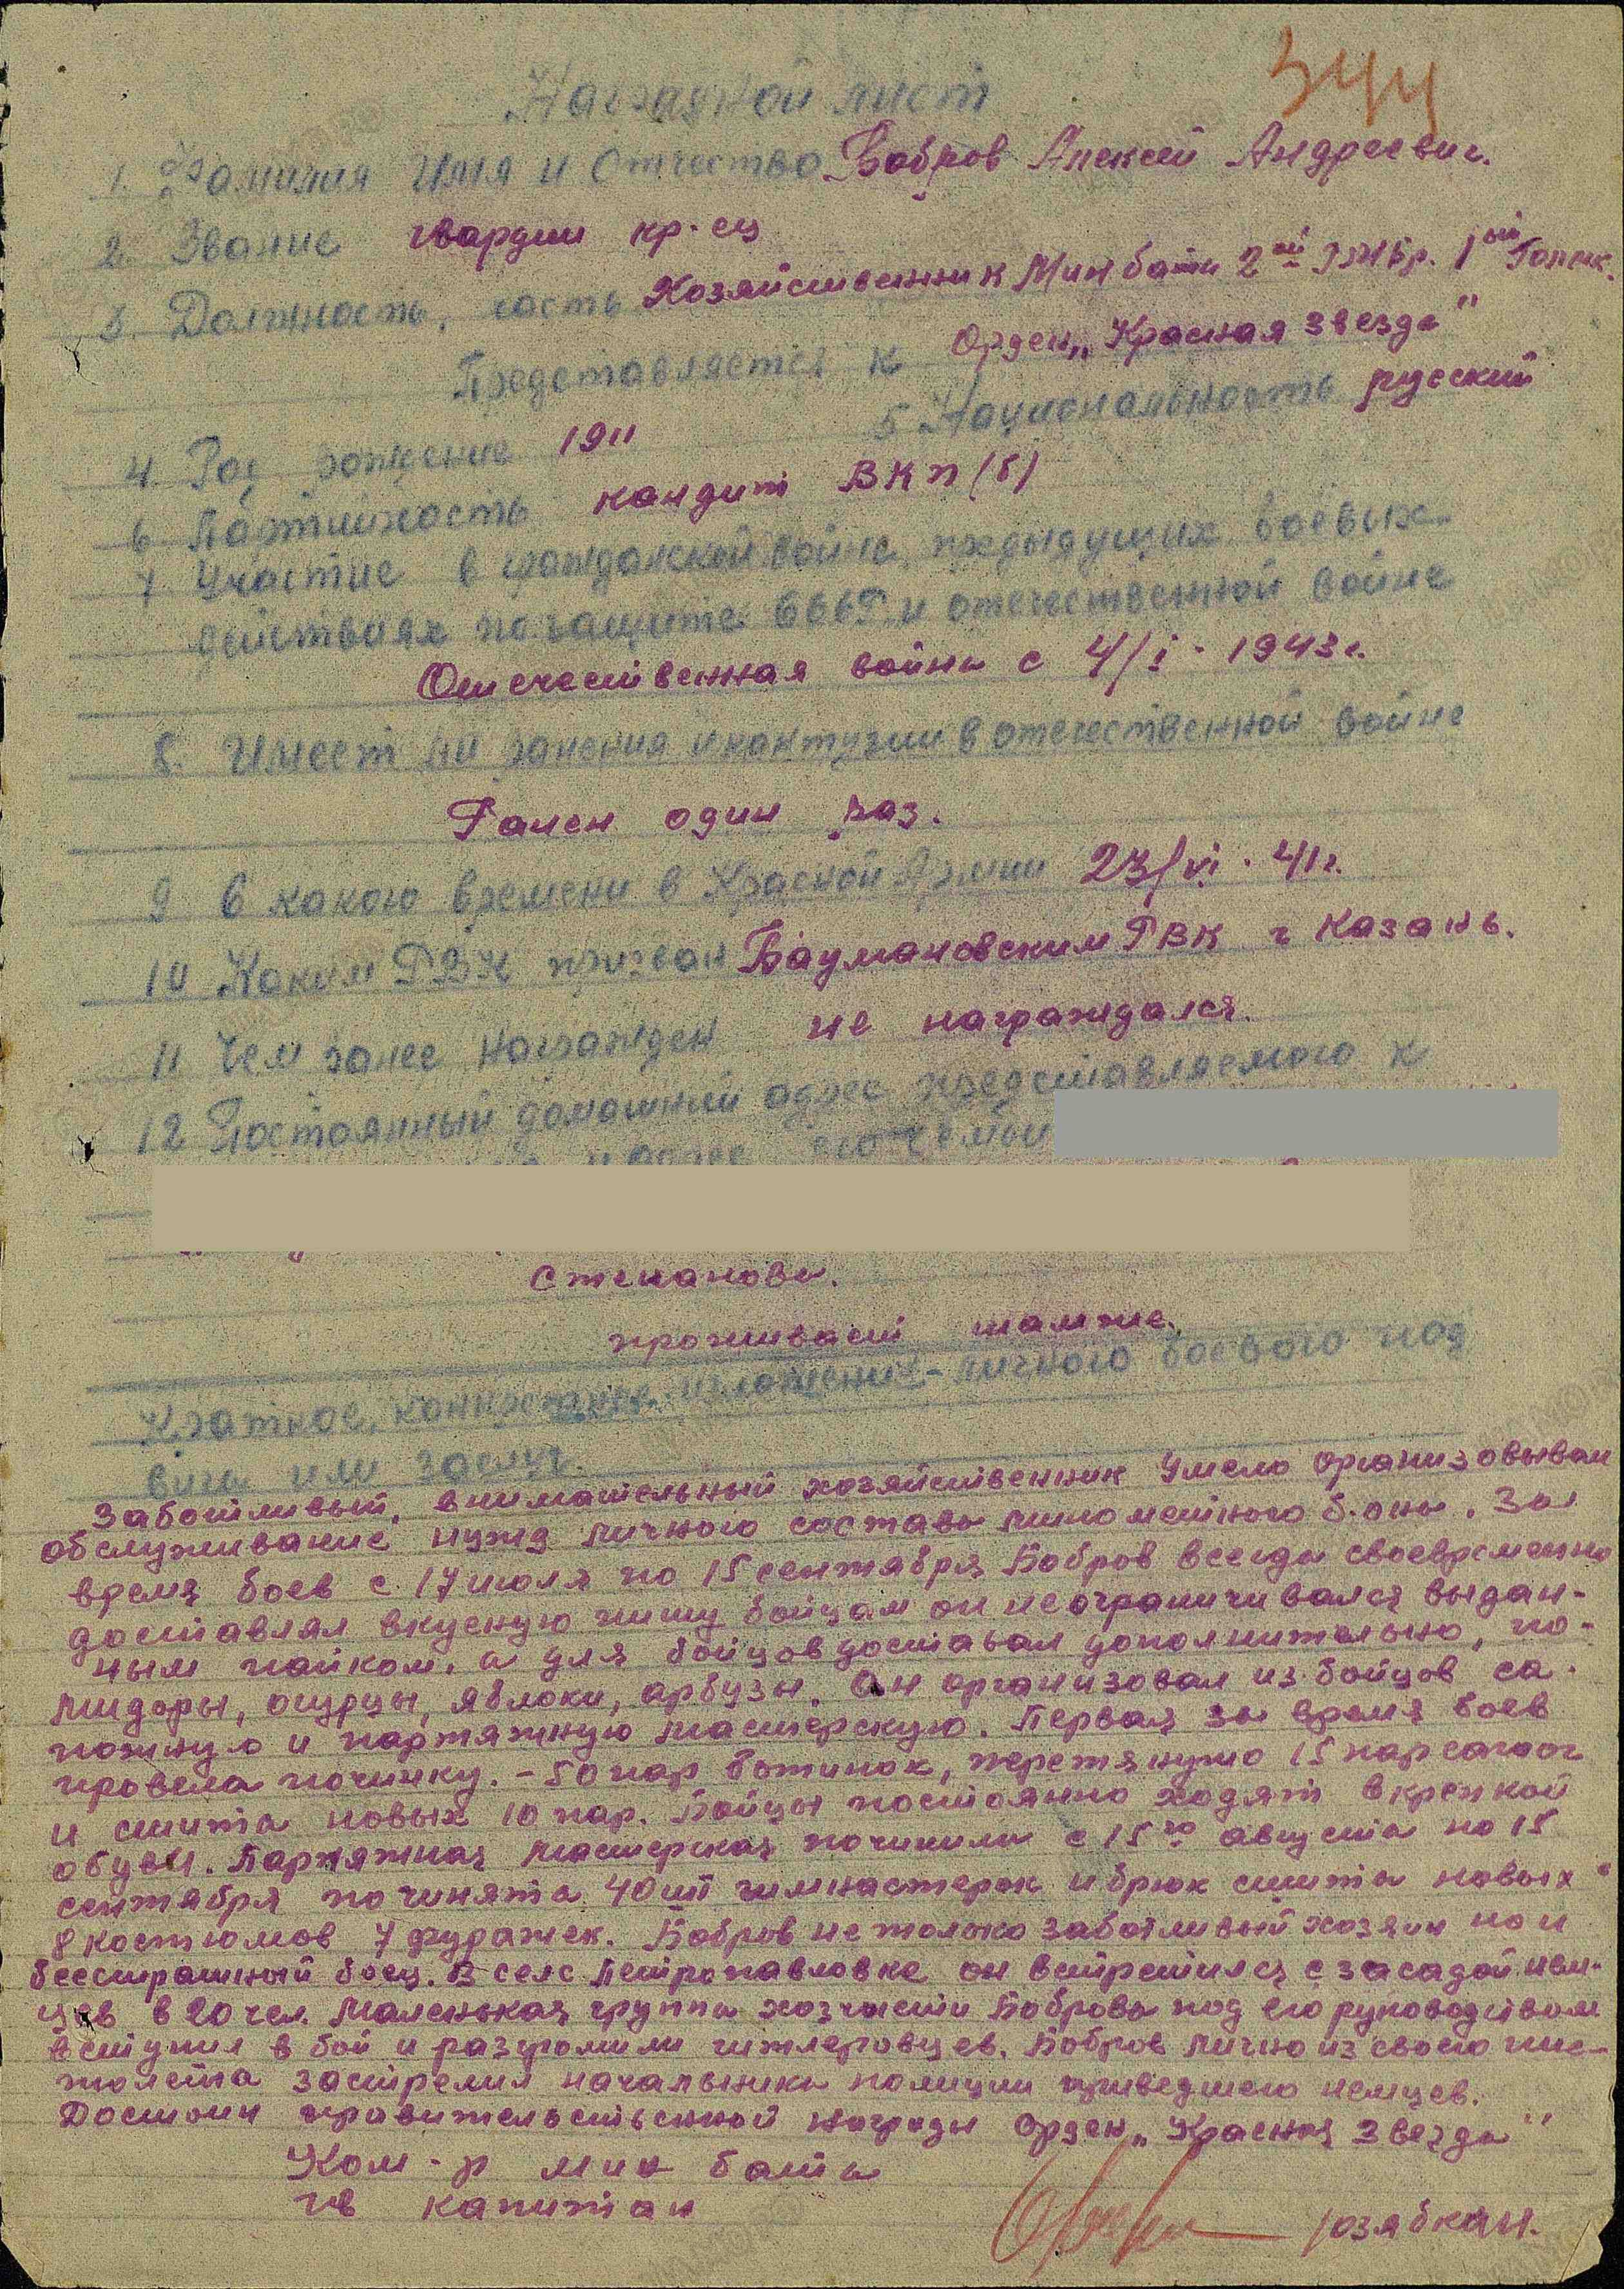 344
Наградной лист
1. Фамилия Имя и Отчество Бобров Алексей Андреевич.
2. Звание гвардии кр-ец
3. Должность, часть Хозяйственник Минбата 2ой
Представляется к Орден „Красная звезда"
4. Год рождение 1911 5 Национальность русский
6 Партийность кандит ВКП(б)
7 Участие в гражданской войне, предыдущих боевых
действиях по защите СССР и отечественной войне
Отечественная война с 4/I - 1943 г.
8. Имеет ли ранения и контузии в отечественной войне
Ранен один раз.
9 С какого времени в Красной Армии 23/VI - 41 г.
10 Каким РВК призван Баумановским РВК г Казань.
11 Чем ранее награжден не награждался.
12 Постоянный домашний адрес представляемого к
и адрес его семьи
Степанова.
проживает там же.
Краткое, конкретное изложение личного боевого под
вига или заслуг.
Заботливый, внимательный хозяйственник Умело Организовывал
обслуживание нужд личного состава минометного б-она. За
время боев с 17 июля по 15 сентября Бобров всегда своевременно
доставлял вкусную пищу бойцам он не ограничивался выдан-
ным пайком, а для бойцов доставал дополнительно, по-
мидоры, огурцы, яблоки, арбузы. Он организовал из бойцов са-
пожную и партяжную мастерскую. Первая за время боев
провела починку. - 50 пар ботинок, перетянуто 15 пар сапог
и сшита новых 10 пар. Бойцы постоянно ходят в крепкой
обуви. Партяжная мастерская починила с 15го августа по 15
сентября починята 40 шт гимнастерок и брюк сшита новых
8 костюмов 7 фуражек. Бобров не только заботливый хозяин но и
бесстрашный боец. В селе Петропавловке он встретился с засадой нем-
цев в 20 чел. Маленькая группа хозчасти Боброва под его руководством
вступил в бой и разгромили гитлеровцев. Бобров лично из своего пис-
толета застрелил начальника полиции приведшего немцев.
Достоин правительственной награды Орден „Красная Звезда"
Ком-р мин бата
гв капитан